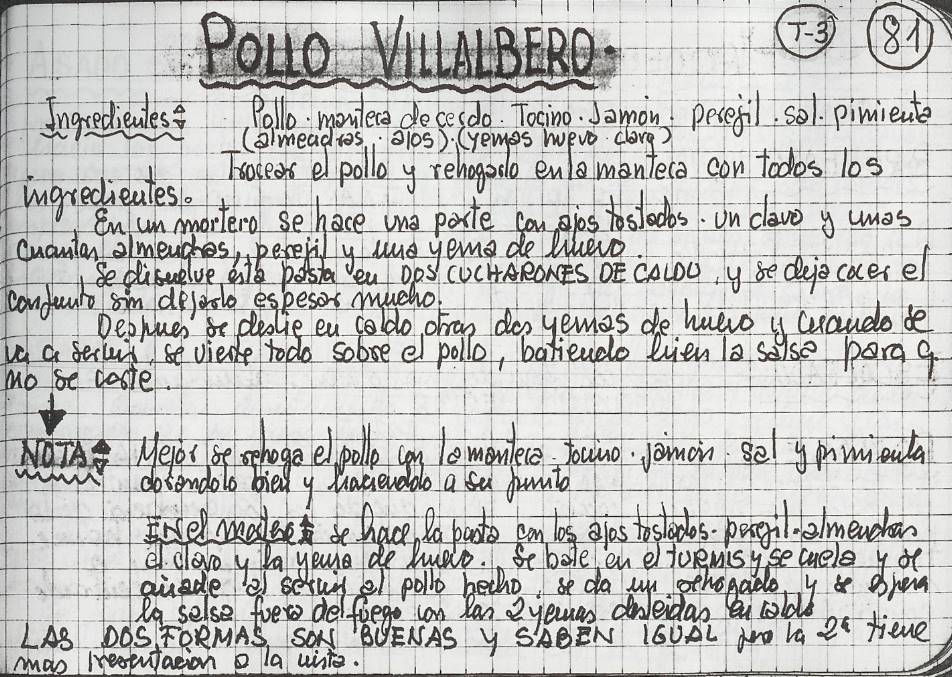 POLLO VILLALBERO.
T-3
81
Ingredientes: Pollo. manteca de cerdo. Tocino. Jamon. perejil. sal. pimienta
(almendras. ajos). (yemas huevo. clavo)
Trocear el pollo y rehogarlo en la manteca con todos los
ingredientes.
En un mortero se hace una pasta con ajos tostados. un clavo y unas
cuantas almendras, perejil y una yema de huevo.
Se disuelve esta pasta en DOS CUCHARONES DE CALDO, y se deja cocer el
conjunto sin dejarlo espesar mucho.
Despues se deslie en caldo otras dos yemas de huevo y cuando se
va a servir, se vierte todo sobre el pollo, batiendo bien la salsa para q.
no se corte.
NOTA: Mejor se rehoga el pollo con la manteca. tocino. jamon. sal y pimienta
dorandolo bien y haciendolo a su punto
EN el mortero se hace la pasta con los ajos tostados. perejil. almendras
el clavo y la yema de huevo. Se bate en el TURMIS y se cuela y se
añade al servir al pollo hecho. se da un rehogado y se espesa
la salsa fuera del fuego con las 2 yemas desleidas en caldo
LAS DOS FORMAS SON BUENAS Y SABEN IGUAL pero la 2ª tiene
mas presentacion a la vista.